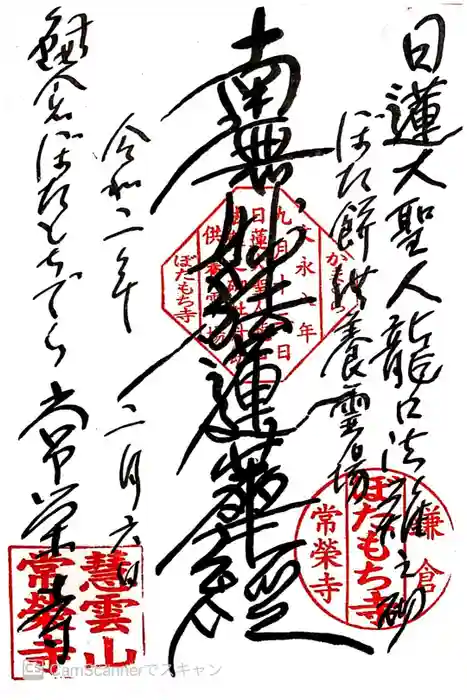 日蓮大聖人龍口法難之砌
ぼた餅供養霊場
南無妙法蓮華経
令和二年 二月六日
鎌倉ぼたもちでら 常栄寺
文永八年
九月十二日
日蓮大聖人
供養霊場
ぼたもち寺
鎌倉
ぼたもち寺
常榮寺
慧雲山
常榮寺
CamScannerでスキャン